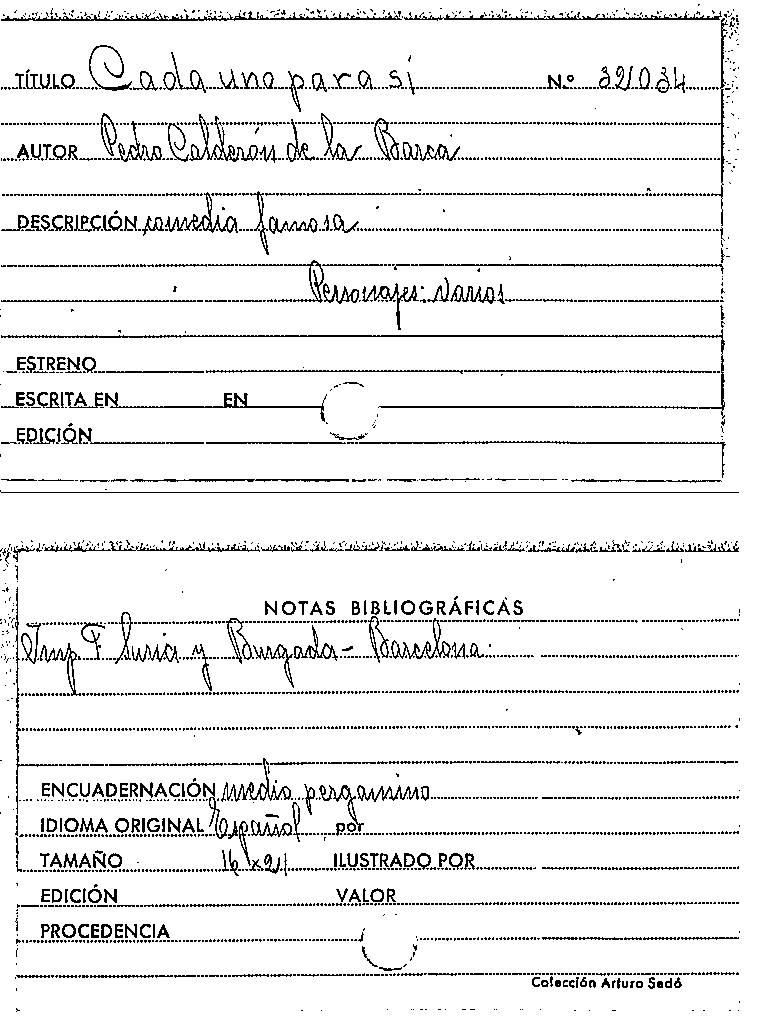 TÍTULO Cada uno para sí N.º 32034
AUTOR Pedro Calderón de la Barca
DESCRIPCIÓN comedia famosa
Personajes: Varios
ESTRENO
ESCRITA EN EN
EDICIÓN
NOTAS BIBLIOGRÁFICAS
Imp F Suria y Burgada - Barcelona.
ENCUADERNACIÓN medio pergamino
IDIOMA ORIGINAL Español por
TAMAÑO 16 x 21 ILUSTRADO POR
EDICIÓN VALOR
PROCEDENCIA
Colección Arturo Sedó